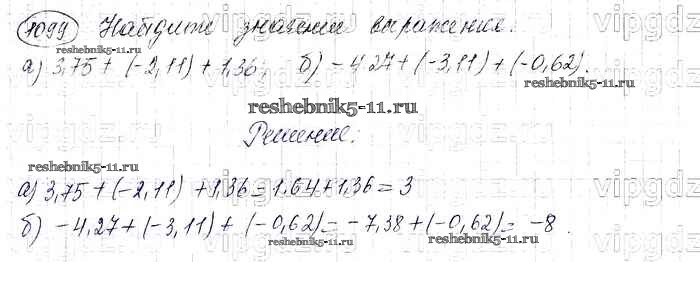 1099 Найдите значение выражения:
reshebnik5-11.ru
а) 3,75 + (-2,11) + 1,36, б) -4,27 + (-3,11) + (-0,62).
vipgdz.ru
reshebnik5-11.ru
Решение:
reshebnik5-11.ru
vipgdz.ru
а) 3,75 + (-2,11) + 1,36 = 1,64 + 1,36 = 3
б) -4,27 + (-3,11) + (-0,62) = -7,38 + (-0,62) = -8.
reshebnik5-11.ru
reshebnik5-11.ru
vipgdz